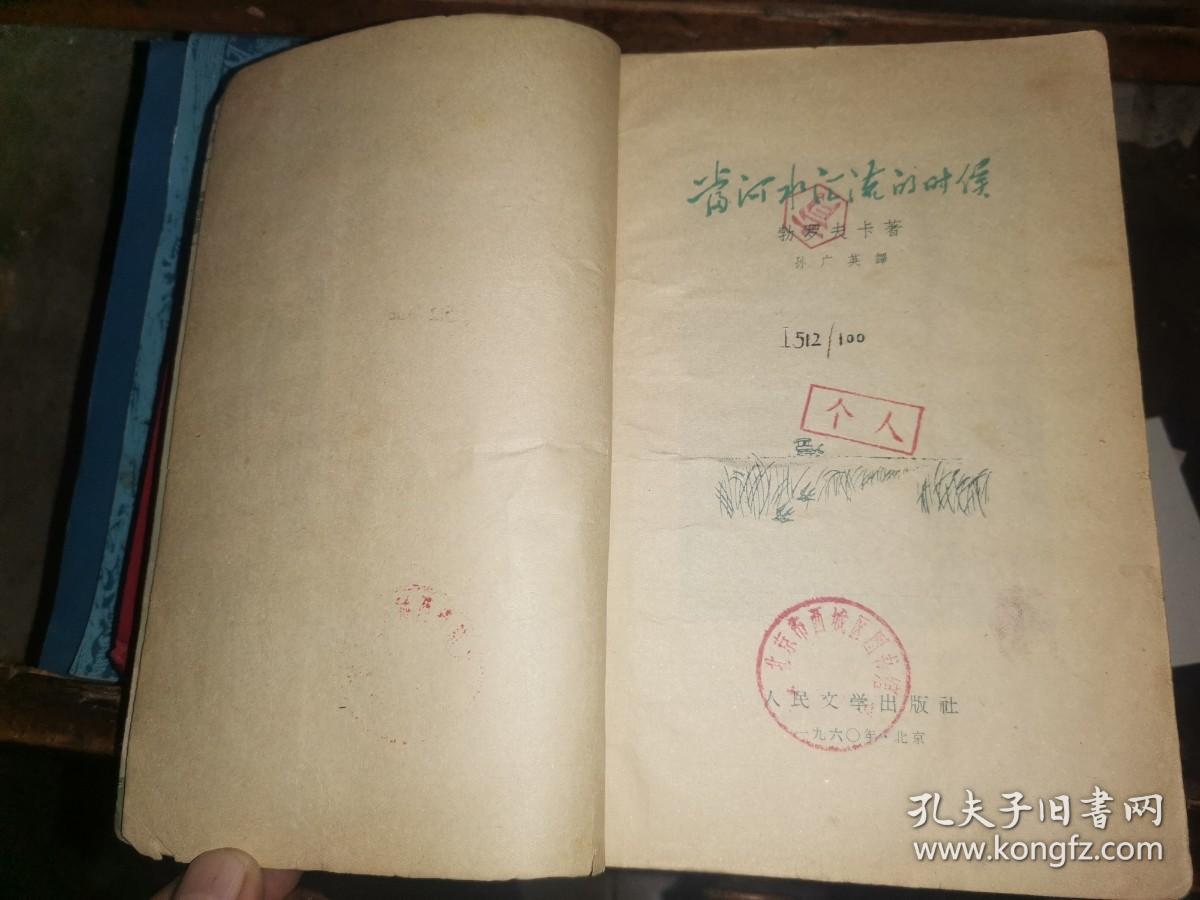 當河水汇流的时候
勃罗夫卡著
孙广英譯
I512/100
个人
北京市西城区图书馆
人民文学出版社
一九六〇年·北京
孔夫子旧書网
www.kongfz.com